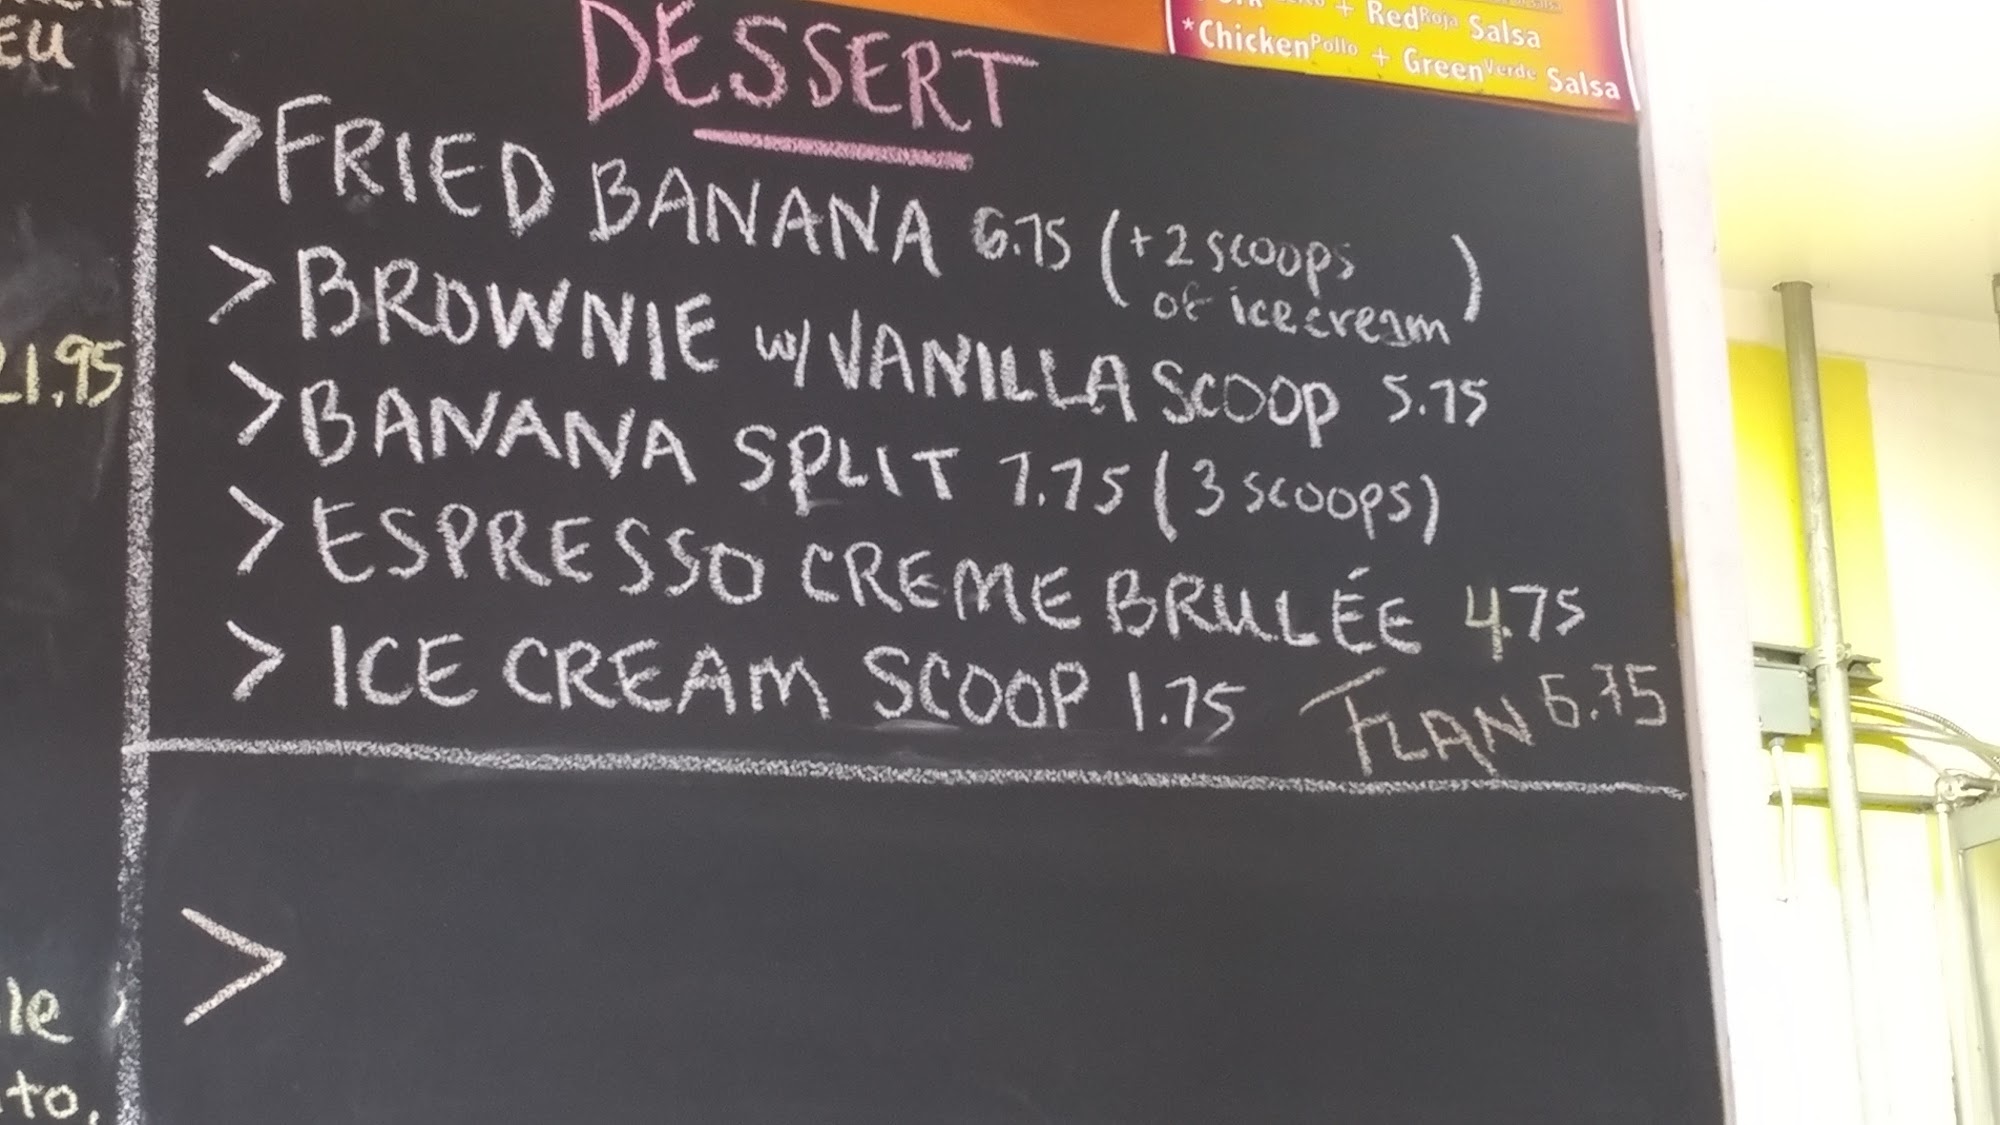 EU
21.95
le
to,
DESSERT
>FRIED BANANA 6.75 (+2 scoops
of icecream)
>BROWNIE w/VANILLA SCOOP 5.75
>BANANA SPLIT 7.75 (3 scoops)
>ESPRESSO CREME BRULÉE 4.75
>ICE CREAM SCOOP 1.75
FLAN 6.75
>
+ Red Roja Salsa
*Chicken Pollo + Green Verde Salsa